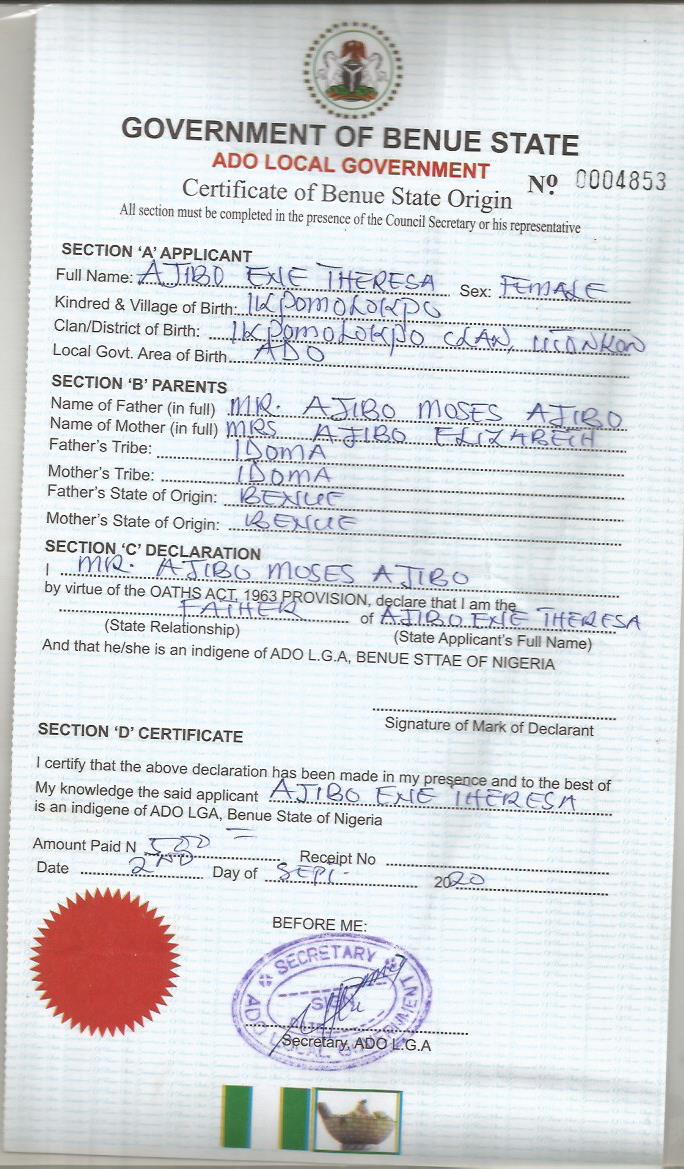 GOVERNMENT OF BENUE STATE
ADO LOCAL GOVERNMENT
Certificate of Benue State Origin
Nº 0004853
All section must be completed in the presence of the Council Secretary or his representative
SECTION 'A' APPLICANT
Full Name: AJIBO ENE THERESA Sex: FEMALE
Kindred & Village of Birth: IKPOMOLOKPO
Clan/District of Birth: IKPOMOLOKPO CLAN,
Local Govt. Area of Birth ADO
SECTION 'B' PARENTS
Name of Father (in full) MR. AJIBO MOSES AJIBO
Name of Mother (in full) MRS AJIBO ELIZABETH
Father's Tribe: IDOMA
Mother's Tribe: IDOMA
Father's State of Origin: BENUE
Mother's State of Origin: BENUE
SECTION 'C' DECLARATION
I MR. AJIBO MOSES AJIBO
by virtue of the OATHS ACT, 1963 PROVISION, declare that I am the
FATHER of AJIBO ENE THERESA
(State Relationship) (State Applicant's Full Name)
And that he/she is an indigene of ADO L.G.A, BENUE STTAE OF NIGERIA
Signature of Mark of Declarant
SECTION 'D' CERTIFICATE
I certify that the above declaration has been made in my presence and to the best of
My knowledge the said applicant AJIBO ENE THERESA
is an indigene of ADO LGA, Benue State of Nigeria
Amount Paid N 500 = Receipt No
Date 2ND Day of SEPT. 2020
BEFORE ME:
SECRETARY
ADO LOCAL GOVERNMENT
Secretary, ADO L.G.A